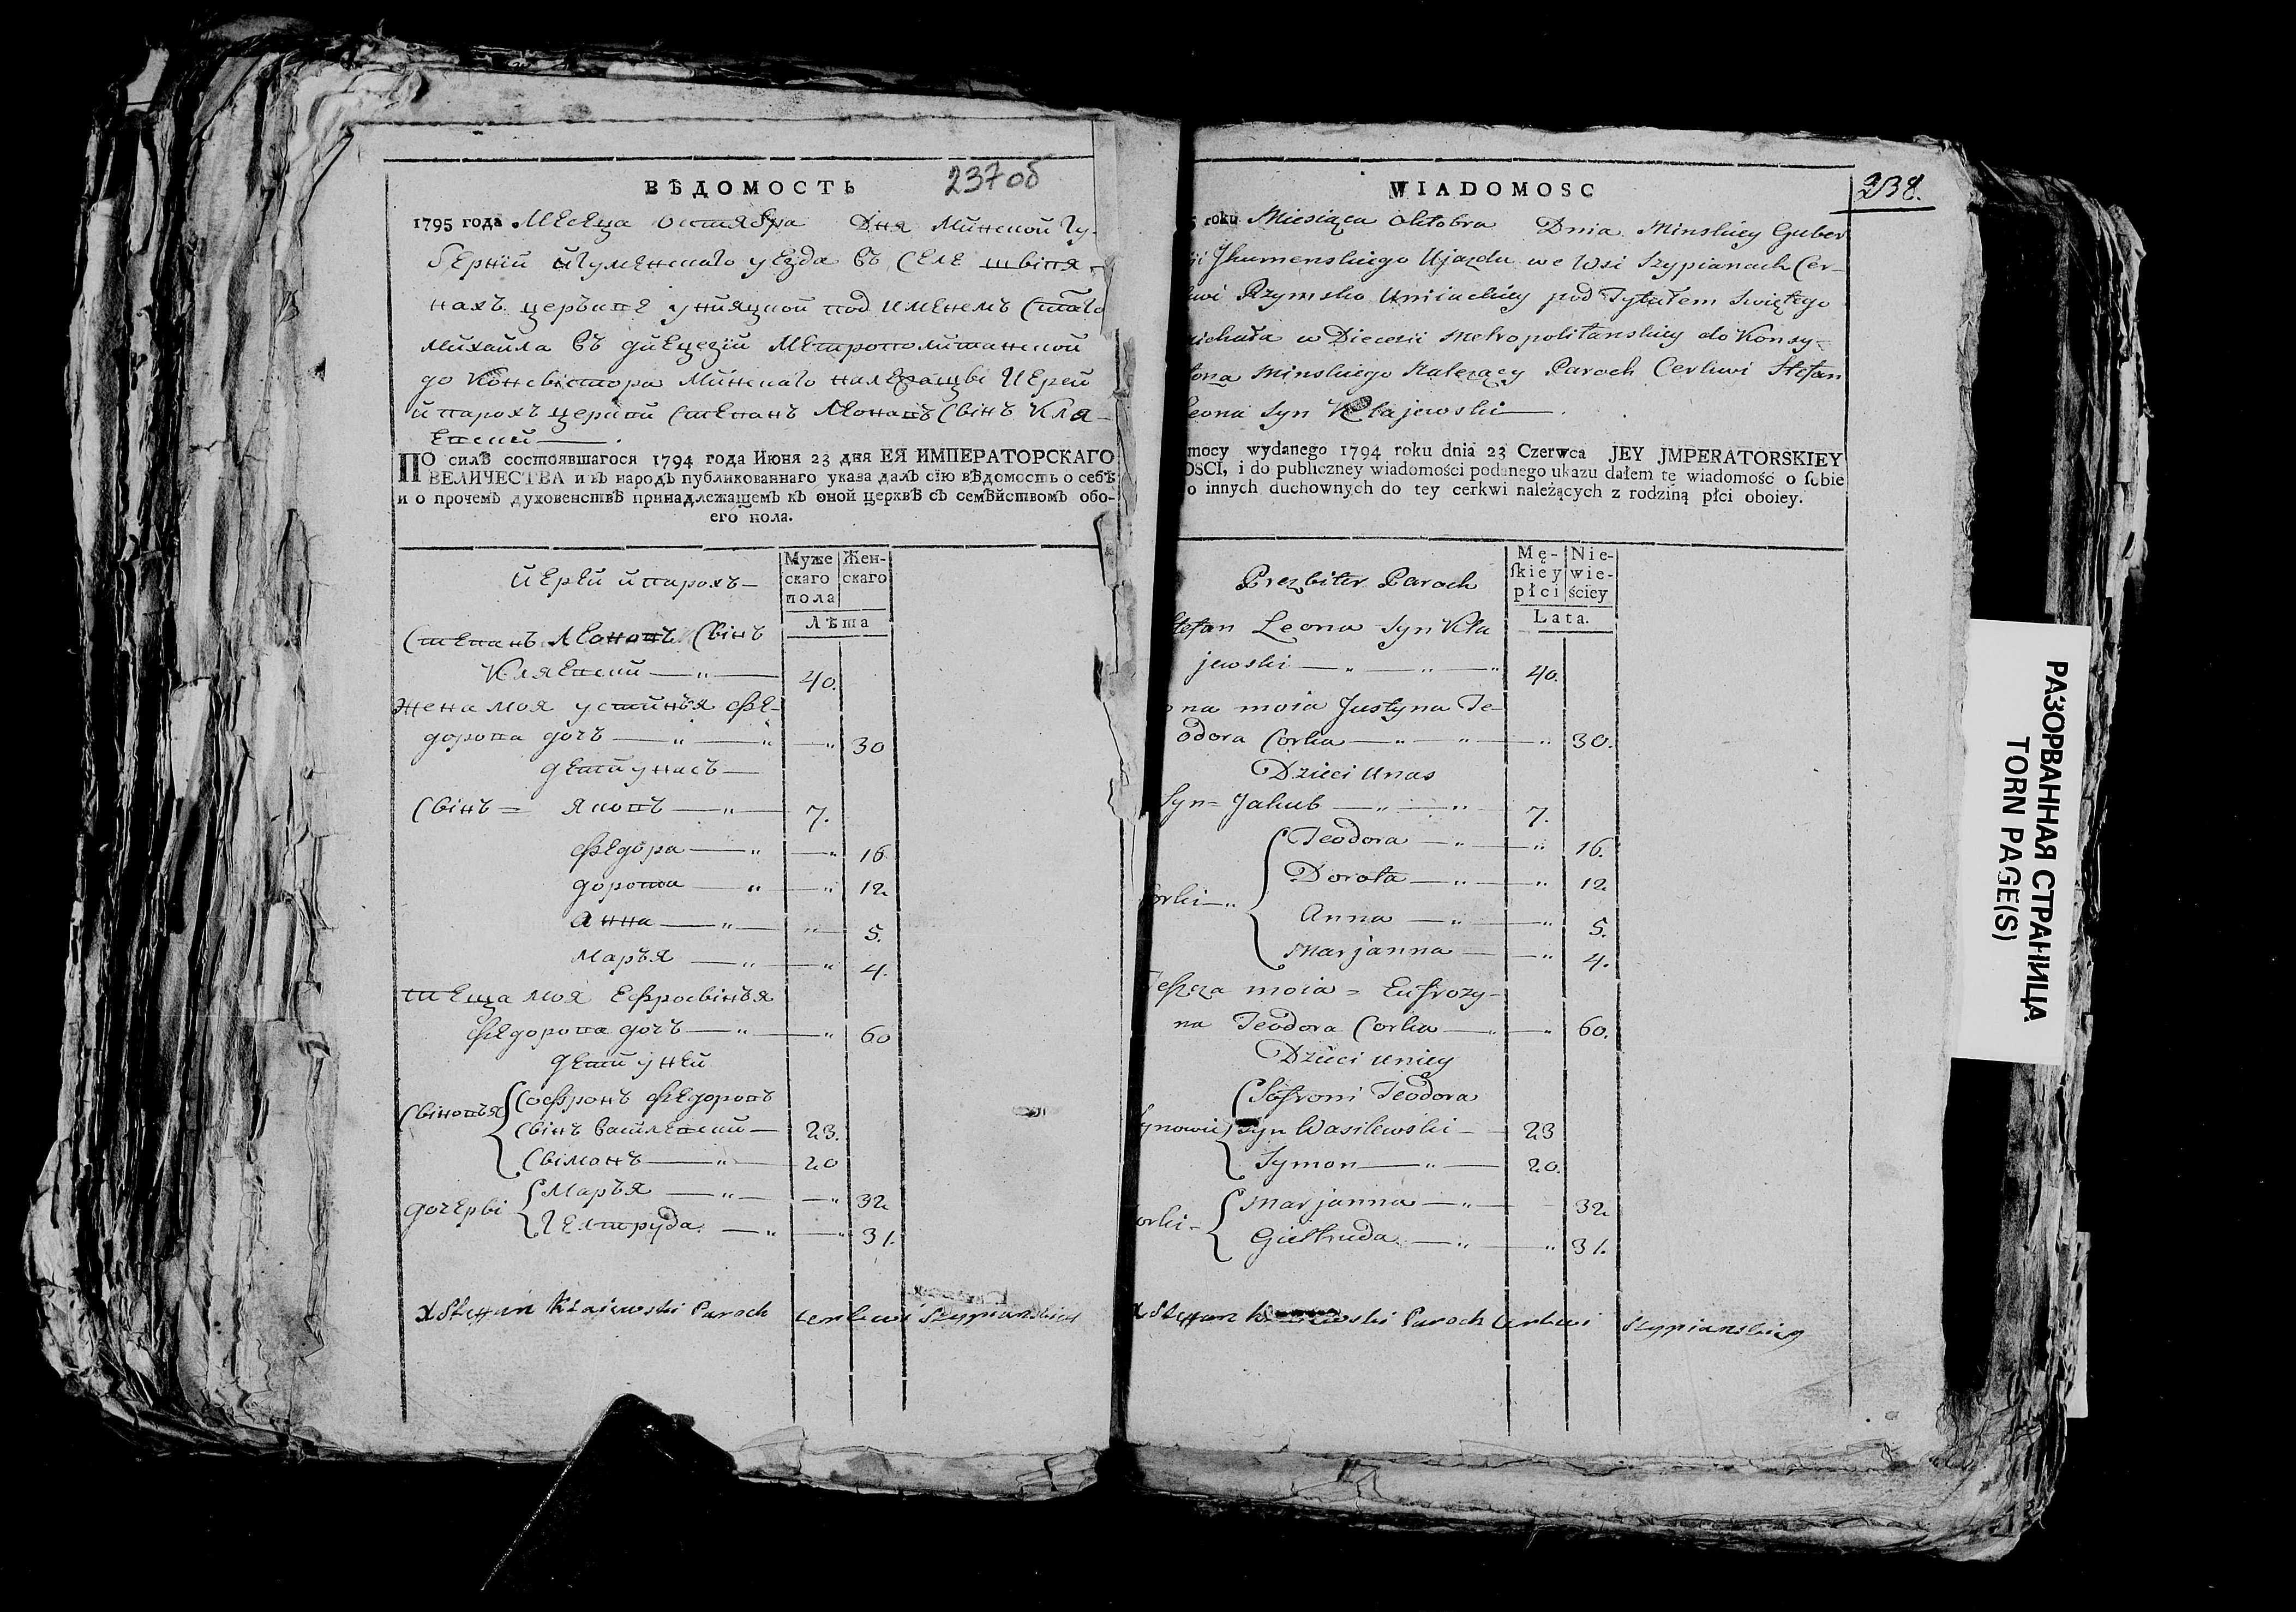 ВѢДОМОСТЬ
237об
1795 года Месеца октября Дня Минской Гу-
берніи Игуменскаго уезда въ селе шьпя-
нахъ церькве унияцкой под именемъ Стаго
Михайла въ диецезіи Метрополитанской
до Консысторя Минскаго належащы Иерей
и парохъ церкви Степанъ Леоновъ Сынъ Кла-
евский
ПО силѣ состоявшагося 1794 года Июня 23 дня ЕЯ ИМПЕРАТОРСКАГО
ВЕЛИЧЕСТВА и въ народъ публикованнаго указа далъ сію вѣдомость о себѣ
и о прочемъ духовенствѣ принадлежащемъ къ оной церквѣ съ семѣйствомъ обо-
его пола.
Иерей и парохъ
Муже
скаго
пола
Жен-
скаго
Лѣта
Степанъ Леоновъ Сынъ
Кляевский 40.
Жена моя устинья фе-
дорова дочъ 30
дети у насъ
Сынъ = Яковъ 7.
федора 16
дорота 12
Анна 5.
Марья 4.
теща моя Ефросинья
федорова дочъ 60
дети у ней
Сыновья Софронъ федоровъ
сынъ Василевский 23.
Сымонъ 20
дочеры Марья 32
Гелтруда 31.
X Steffan Kłaiewski Paroch Cerkwi Szypianskiey
WIADOMOSC
238.
roku Miesiąca Oktobra Dnia Minskiey Guber
ji Jhumenskiego Ujazdu we Wsi Szypianach Cer-
kwi Rzymsko Uniackiey pod Tytułem Swiętego
ichała w Diecezii Metropolitanskiey do Konsy-
torza Minskiego Należący Paroch Cerkwi Stefan
Leona Syn Kłajewski
mocy wydanego 1794 roku dnia 23 Czerwca JEY JMPERATORSKIEY
OSCI, i do publiczney wiadomości podanego ukazu dałem tę wiadomość o sobie
o innych duchownych do tey cerkwi należących z rodziną płci oboiey.
Prezbiter Paroch
Mę-
skiey
płci
Nie-
wie-
ściey
Lata.
Stefan Leona Syn Kła
jewski 40.
ona moia Justyna Te-
odora Corka 30.
Dzieci u nas
Syn = Jakub 7.
Teodora 16.
Dorota 12
orki Anna 5.
Marjanna 4.
Teszcza moia = Eufrozy-
na Teodora Corka 60.
Dzieci u niey
Sofroni Teodora
ynowie syn Wasilewski 23
Symon 20.
orki = Marjanna 32
Gieltruda 31.
X Steffan Paroch Cerkwi Szypianskiey
РАЗОРВАННАЯ СТРАНИЦА
TORN PAGE(S)